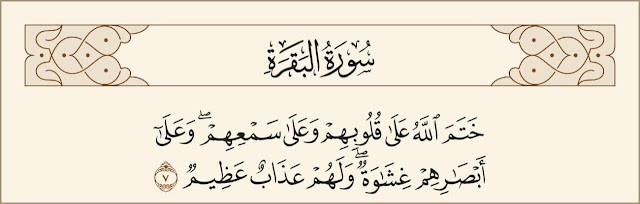 سُورَةُ البَقَرَةِ
خَتَمَ ٱللَّهُ عَلَىٰ قُلُوبِهِمْ وَعَلَىٰ سَمْعِهِمْۖ وَعَلَىٰٓ
أَبْصَٰرِهِمْ غِشَٰوَةٌۖ وَلَهُمْ عَذَابٌ عَظِيمٌ ٧